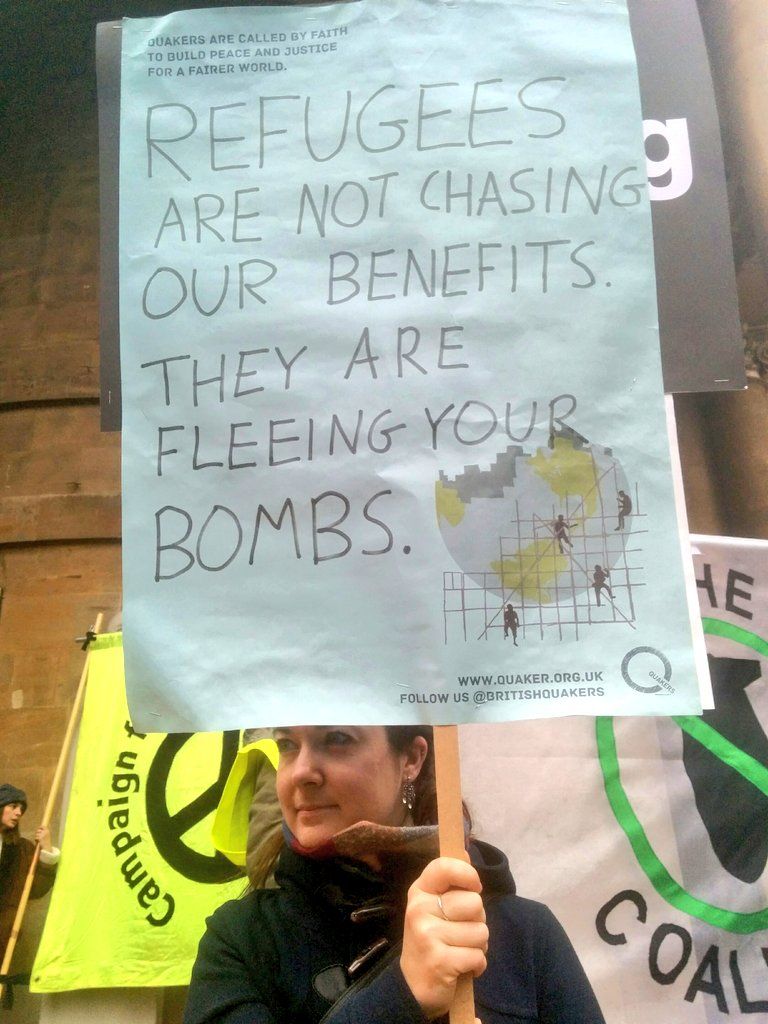 QUAKERS ARE CALLED BY FAITH
TO BUILD PEACE AND JUSTICE
FOR A FAIRER WORLD.
REFUGEES
ARE NOT CHASING
OUR BENEFITS.
THEY ARE
FLEEING YOUR
BOMBS.
WWW.QUAKER.ORG.UK
FOLLOW US @BRITISHQUAKERS
QUAKERS
g
Campaign f
HE
COAL